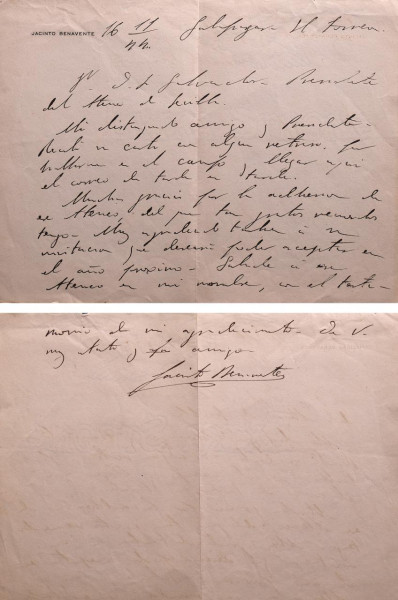 JACINTO BENAVENTE 16 11 44. Galapagar El Torreon.
Sr. D. Salvador Presidente
del Ateneo de Sevilla.
Mi distinguido amigo y Presidente.
Recibí su carta con algún retraso, por
hallarme en el campo, y llegar aquí
el correo de tarde en tarde.
Muchas gracias por la adhesion de
ese Ateneo, del que tan gratos recuerdos
tengo. Muy agradecido tambien á su
invitacion, que desearia poder aceptar en
el año proximo. Salude á ese
Ateneo en mi nombre, con el testi-
monio de mi agradecimiento. De V.
muy atento y amigo.
Jacinto Benavente